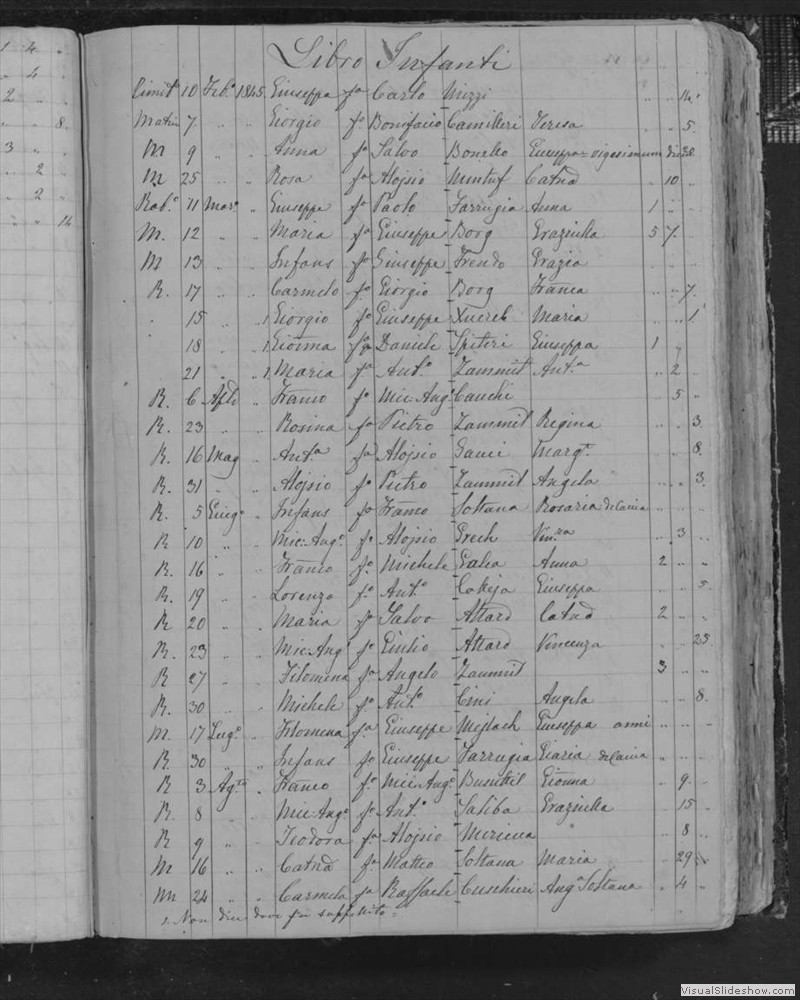 1 4 .
. 4 .
2 . .
. . 8.
3 . .
. 2
. 2 .
. . 14
Libro Infanti
Cimitº 10 Febº 1845 Giuseppa fª Carlo Mizzi .. .. 14.
Matri 7. .. .. Giorgio fº Bonifacio Camilleri Teresa .. .. 5.
M 9 .. .. Anna fª Salvo Bonello Giuseppa vigesimum
M 25 .. .. Rosa fª Alojsio Catnª .. 10 ..
Rabº 11 Marº .. Giuseppe fº Paolo Farrugia Anna 1 .. ..
M. 12 .. .. Maria fª Giuseppe Borg Graziulla 5 7.
M 13 .. .. Infans fº Giuseppe Frendo Grazia
R. 17 .. .. Carmelo fº Giorgio Borg Franca .. .. 7.
. 15 .. 1 Giorgio fº Giuseppe Xuereb Maria .. .. 1
18 .. 1 Gioñna fª Daniele Spiteri Giuseppa 1 ..
21 .. 1 Maria fª Antº Zammit Antª .. 2 ..
R. 6 Aple .. Franco fº Mic:Angº Cauchi .. 5 ..
R. 23 .. .. Rosina fª Pietro Zammit Regina .. .. 3.
R. 16 Mag .. Antª fª Alojsio Gauci Margª .. .. 8.
R. 31 .. .. Alojsio fº Pietro Zammit Angela .. .. 3.
R. 5 Giugº .. Infans fº Franco Soltana Rosaria
R 10 .. .. Mic:Angº fº Alojsio Grech Vinzª .. 3 ..
R. 16 .. .. Franco fº Michele Galea Anna 2 .. ..
R. 19 .. .. Lorenzo fº Antº Calleja Giuseppa .. .. 5.
R 20 .. .. Maria fª Salvo Attard Catnª 2 .. ..
R. 23 .. .. Mic:Angº fº Giulio Attard Vincenza .. .. 23
R 27 .. .. Filomena fª Angelo Zammit 3 .. ..
R. 30 .. .. Michele fº Antº Cini Angela .. .. 8.
M. 17 Lugº .. Filomena fª Giuseppe Mifsach Giuseppa anni .. .. ..
R. 30 .. .. Infans fº Giuseppe Farrugia .. .. ..
R 3 Agto .. Franco fº Mic:Angº Busuttil Gioñna .. 9. ..
R. 8 .. .. Mic:Angº fº Antº Saliba Graziulla .. 15 ..
R 9 .. .. Teodora fª Alojsio Micieua .. 8 ..
M 16 .. .. Catnª fª Matteo Soltana Maria .. 29 ..
M 24 .. .. Carmela fª Raffaele Cuschieri Angª Soltana .. 4 ..
1. Non dice dove fu seppellito =
VisualSlideshow.com